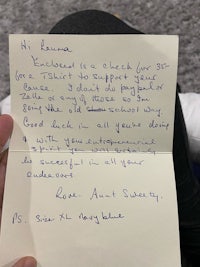 Hi Ranna
Enclosed is a check for 35-
for a Tshirt to support your
Cause. I don't do paypal or
Zelle or any of those so I'm
doing the old school way.
Good luck in all you're doing
& with your entrepreneurial
spirit you will certainly
be sucessful in all your
endeavors
Love - Aunt Sweety.
PS. Size XL Navy blue